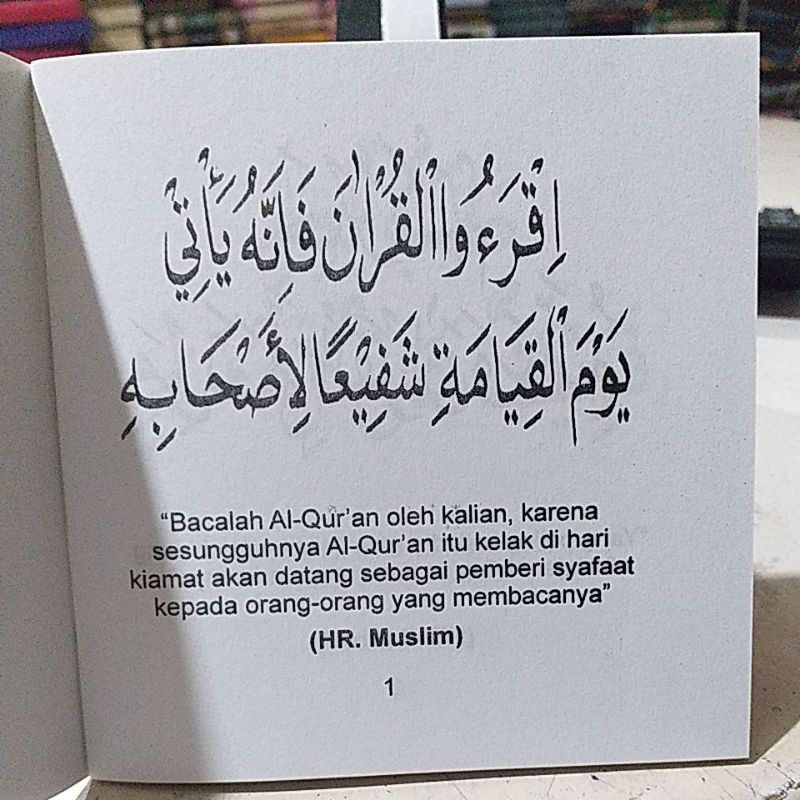 اِقْرَءُوا الْقُرْاٰنَ فَاِنَّهُ يَأْتِيْ
يَوْمَ الْقِيَامَةِ شَفِيْعًا لِأَصْحَابِهِ
“Bacalah Al-Qur’an oleh kalian, karena
sesungguhnya Al-Qur’an itu kelak di hari
kiamat akan datang sebagai pemberi syafaat
kepada orang-orang yang membacanya”
(HR. Muslim)
1